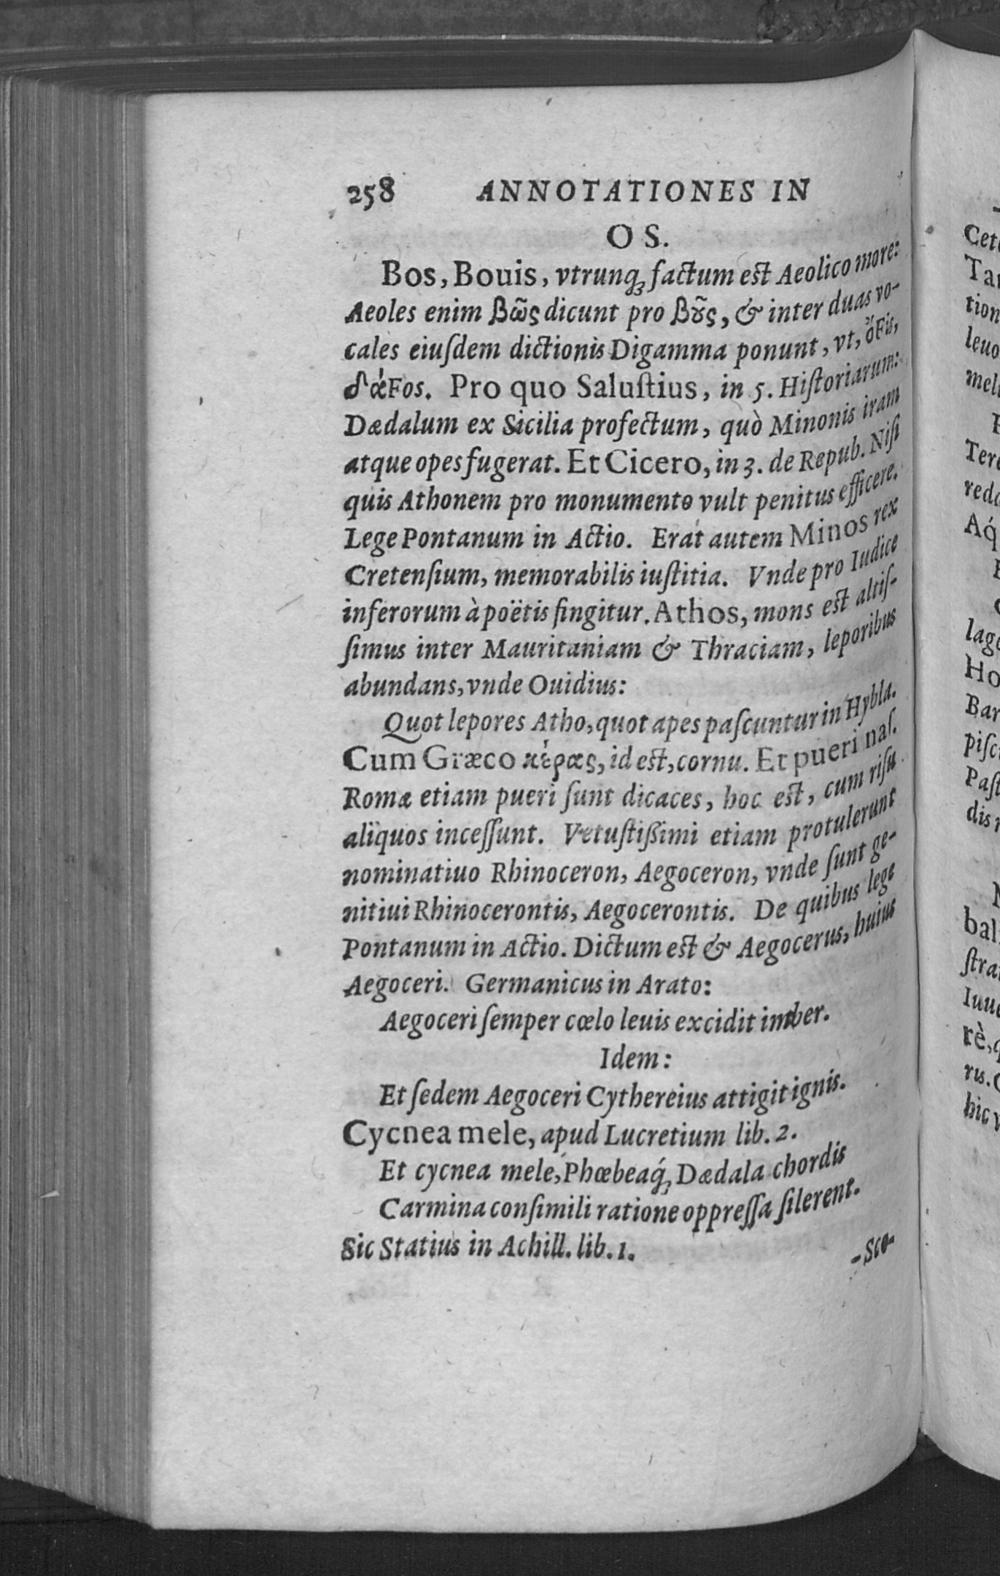 258 ANNOTATIONES IN
OS.
Bos, Bouis, vtrunq; factum est Aeolico more:
Aeoles enim βῶς dicunt pro βȣ͂ς, & inter duas vo-
cales eiusdem dictionis Digamma ponunt, vt, ὄFις,
δάFος. Pro quo Salustius, in 5. Historiarum:
Dædalum ex Sicilia profectum, quò Minonis iram
atque opes fugerat. Et Cicero, in 3. de Repub. Nisi
quis Athonem pro monumento vult penitus efficere.
Lege Pontanum in Actio. Erat autem Minos rex
Cretensium, memorabilis iustitia. Vnde pro Iudice
inferorum à poëtis fingitur. Athos, mons est altis-
simus inter Mauritaniam & Thraciam, leporibus
abundans, vnde Ouidius:
Quot lepores Atho, quot apes pascuntur in Hybla.
Cum Græco κέρας, id est, cornu. Et pueri nas.
Romæ etiam pueri sunt dicaces, hoc est, cum risu
aliquos incessunt. Vetustissimi etiam protulerunt
nominatiuo Rhinoceron, Aegoceron, vnde sunt ge-
nitiui Rhinocerontis, Aegocerontis. De quibus lege
Pontanum in Actio. Dictum est & Aegocerus, huius
Aegoceri. Germanicus in Arato:
Aegoceri semper cœlo leuis excidit imber.
Idem:
Et sedem Aegoceri Cythereius attigit ignis.
Cycnea mele, apud Lucretium lib. 2.
Et cycnea mele, Phœbeaq́; Dædala chordis
Carmina consimili ratione oppressa silerent.
Sic Statius in Achill. lib. 1.
-Sco-